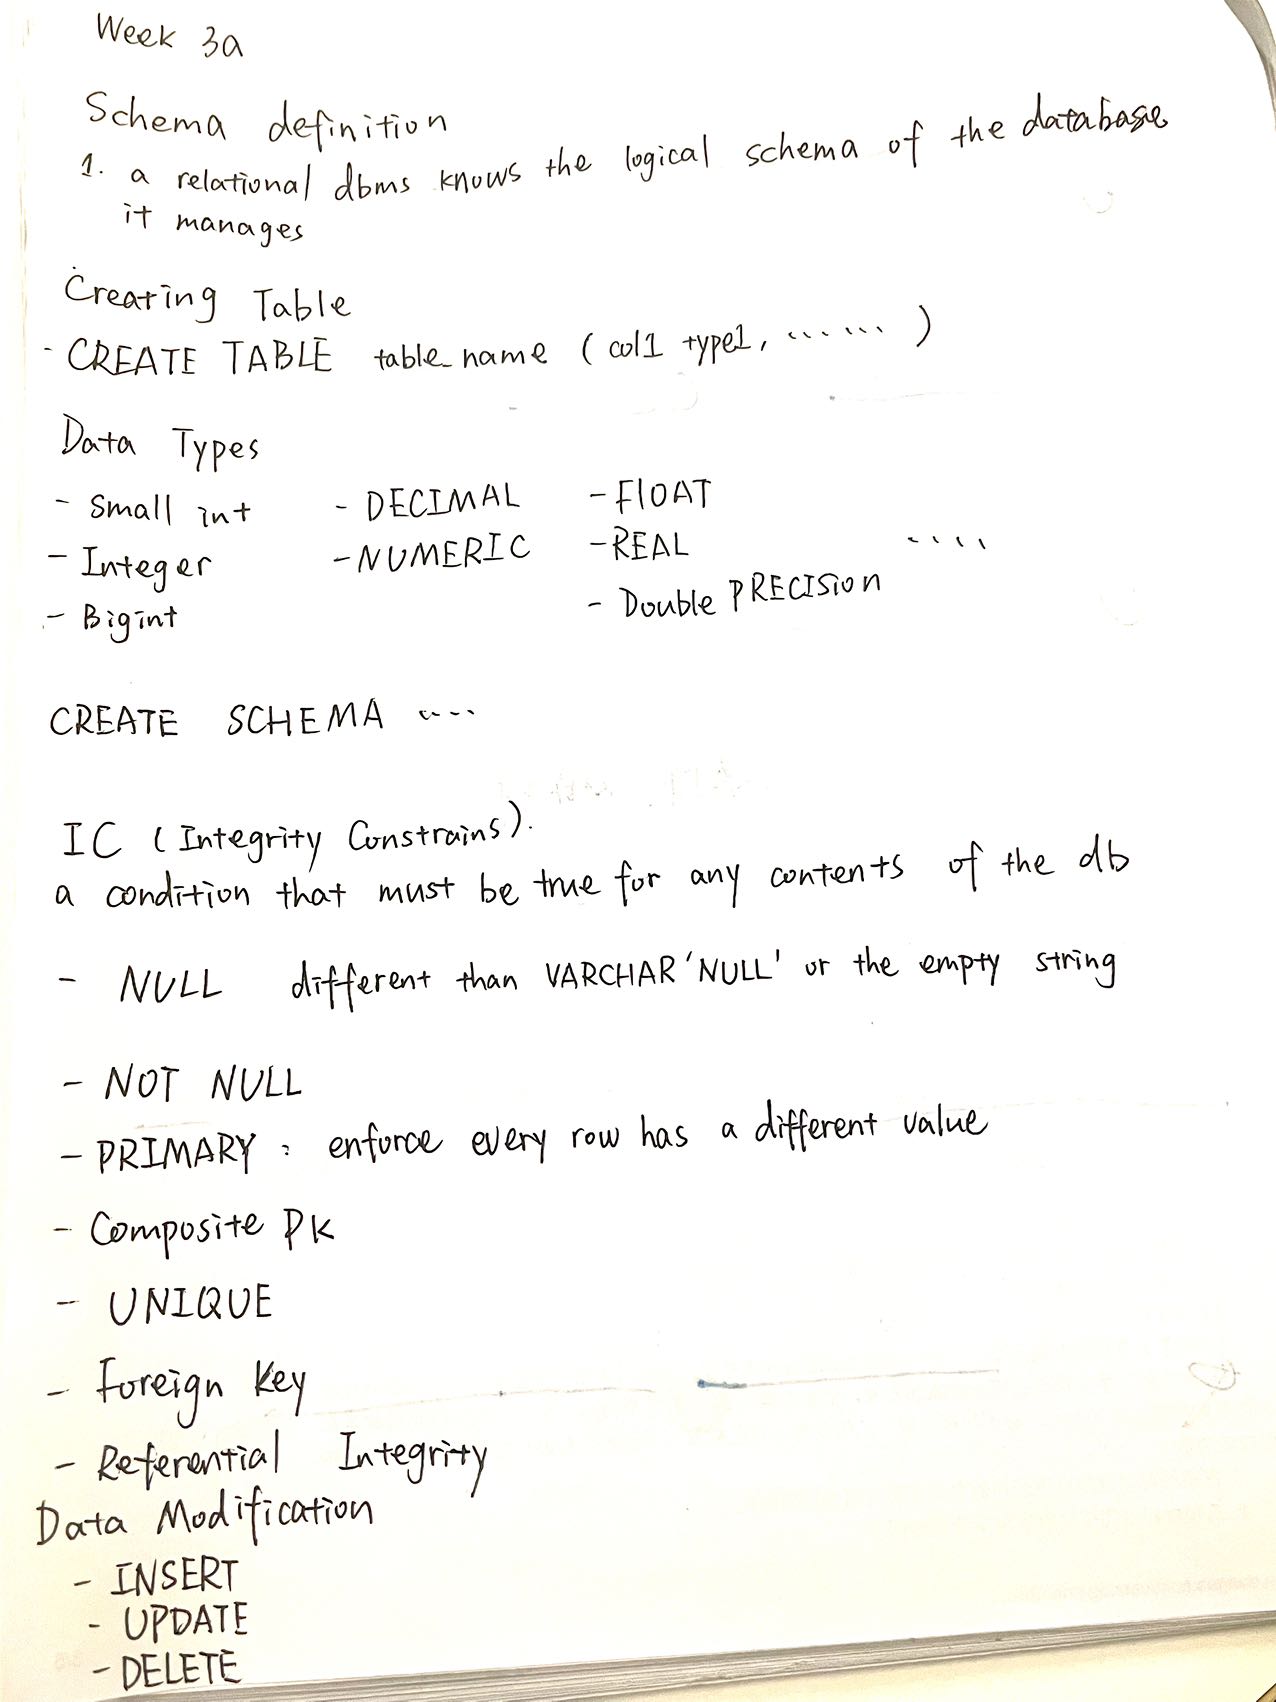 Week 3a
Schema definition
1. a relational dbms knows the logical schema of the database
it manages
Creating Table
- CREATE TABLE table_name (col1 type1, ...... )
Data Types
- Small int - DECIMAL - FlOAT
- Integer - NUMERIC - REAL ....
- Bigint - Double PRECISION
CREATE SCHEMA ....
IC (Integrity Constrains).
a condition that must be true for any contents of the db
- NULL different than VARCHAR 'NULL' or the empty string
- NOT NULL
- PRIMARY : enforce every row has a different value
- Composite PK
- UNIQUE
- Foreign Key
- Referential Integrity
Data Modification
- INSERT
- UPDATE
- DELETE